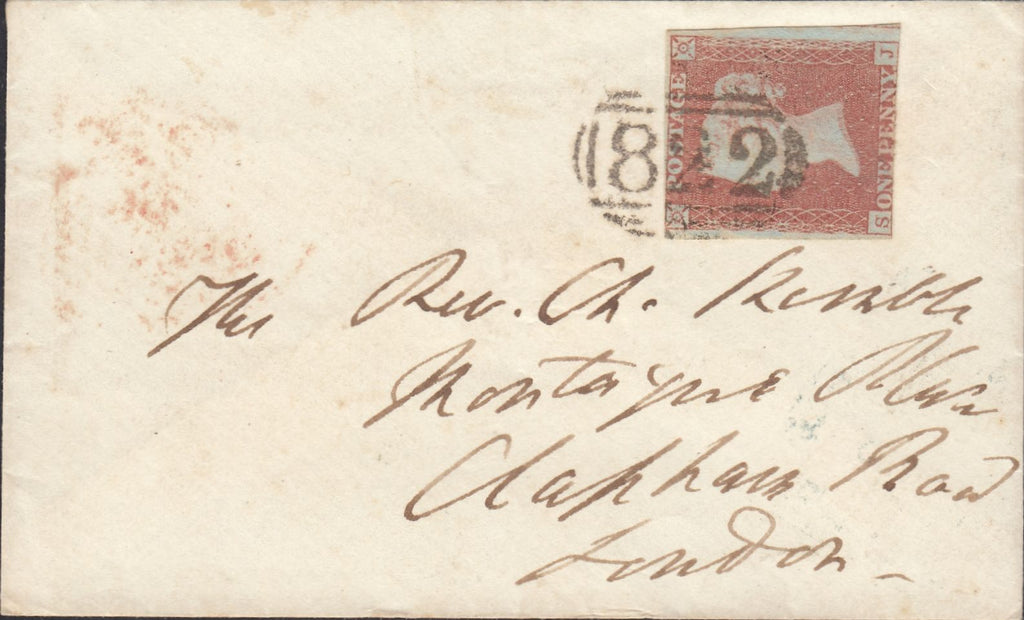 POSTAGE
ONE PENNY
S J
8 2
The Rev. Ch. Kemble
Montague Place
Clapham Road
London